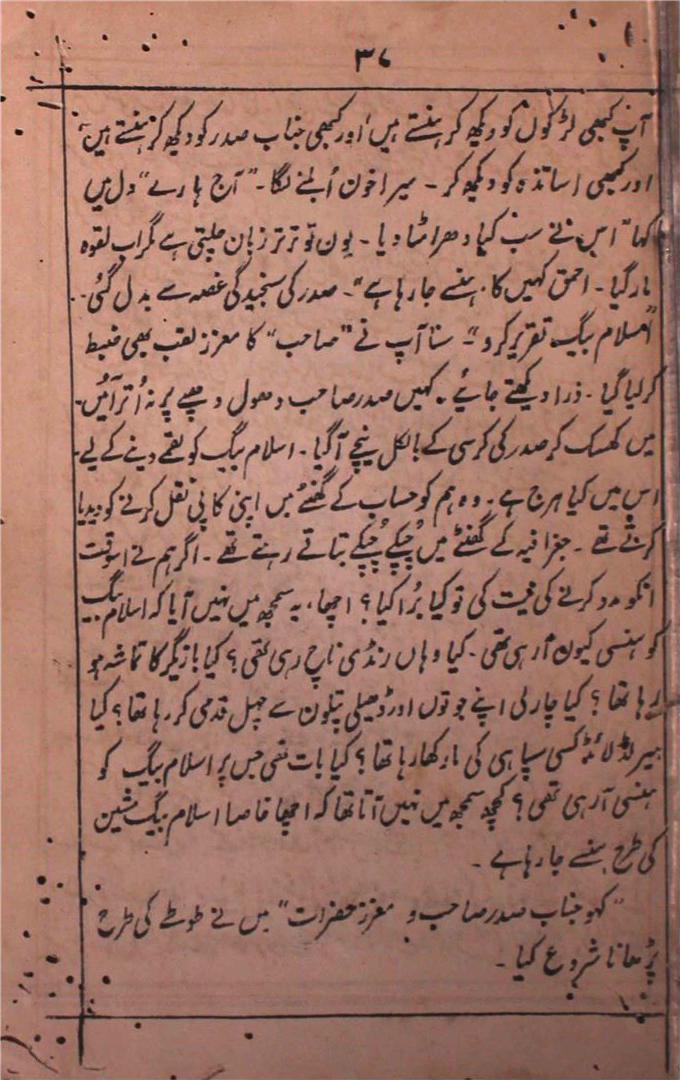 ۳۷
آپ کبھی لڑکوں کو دیکھ کر ہنستے ہیں اور کبھی جناب صدر کو دیکھ کر ہنستے ہیں
اور کبھی اساتذہ کو دیکھ کر ۔ میرا خون اُبلنے لگا ۔ "آج ہارے" دل میں
کہا "اس نے سب کیا دھرا مٹا دیا ۔ یوں تو ترتر زبان چلتی ہے مگر اب لقوہ
مار گیا ۔ احمق کہیں کا ہنسے جا رہا ہے" ۔ صدر کی سنجیدگی غصہ سے بدل گئی ۔
"اسلام بیگ تقریر کرو" ۔ سنا آپ نے "صاحب" کا معزز لقب بھی ضبط
کر لیا گیا ۔ ذرا دیکھتے جائیے ۔ کہیں صدر صاحب دھول دھپے پر نہ اُتر آئیں ۔
میں کھسک کر صدر کی کرسی کے بالکل نیچے آ گیا ۔ اسلام بیگ کو لقمے دینے کے لیے ۔
اس میں کیا ہرج ہے ۔ وہ ہم کو حساب کے گھنٹے میں اپنی کاپی نقل کرنے کو دیدیا
کرتے تھے ۔ جغرافیہ کے گھنٹے میں چُپکے چُپکے بتاتے رہتے تھے ۔ اگر ہم نے اسوقت
انکو مدد کرنے کی نیت کی تو کیا بُرا کیا ؟ اچھا ، یہ سمجھ میں نہیں آیا کہ اسلام بیگ
کو ہنسی کیوں آ رہی تھی ۔ کیا وہاں رنڈی ناچ رہی تھی ؟ کیا بازیگر کا تماشہ ہو
رہا تھا ؟ کیا چارلی اپنے جوتوں اور ڈھیلی پتلون سے چہل قدمی کر رہا تھا ؟ کیا
ہیرلڈ لائڈ کسی سپاہی کی مار کھا رہا تھا ؟ کیا بات تھی جس پر اسلام بیگ کو
ہنسی آ رہی تھی ؟ کچھ سمجھ میں نہیں آتا تھا کہ اچھا خاصا اسلام بیگ مشین
کی طرح ہنسے جا رہا ہے ۔
"کہو جناب صدر صاحب و معزز حضرات" میں نے طوطے کی طرح
پڑھانا شروع کیا ۔